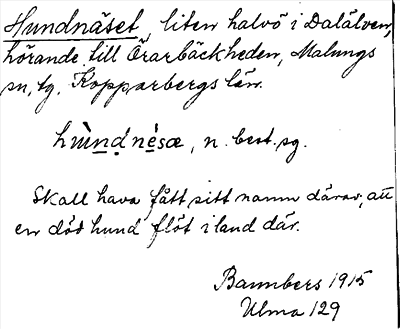 Hundnäset, liten halvö i Dalälven,
hörande till Örarbäckheden, Malungs
sn, tg. Kopparbergs län.
hùndnésæ, n. best. sg.
Skall hava fått sitt namn därav, att
en död hund flöt i land där.
Bannbers 1915
Ulma 129